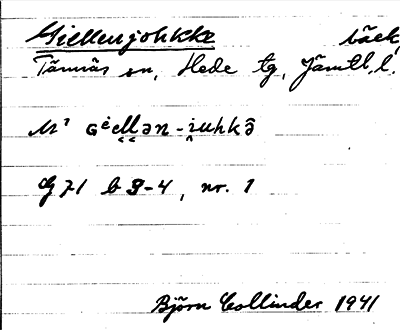 Giellenjohkke bäck
Tännäs sn, Hede tg, Jämtl. l.
G 71 b 3-4, nr. 1
Björn Collinder 1941